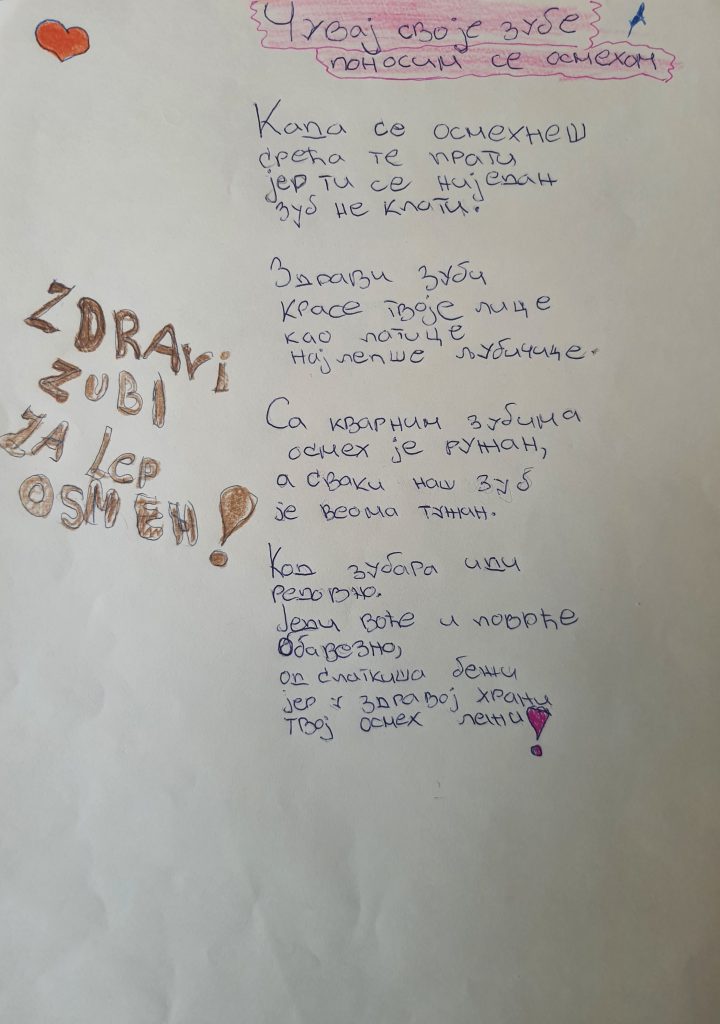 Чувај своје зубе
поносим се осмехом
Када се осмехнеш
срећа те прати
јер ти се ниједан
зуб не клати.
Здрави зуби
красе твоје лице
као латице
најлепше љубичице.
Са кварним зубима
осмех је ружан,
а сваки наш зуб
је веома тужан.
Код зубара иди
редовно.
Једи воће и поврће
Обавезно,
од слаткиша бежи
јер у здравој храни
твој осмех лежи!
ZDRAVi
ZUBI
ZA Lep
OSMEH!